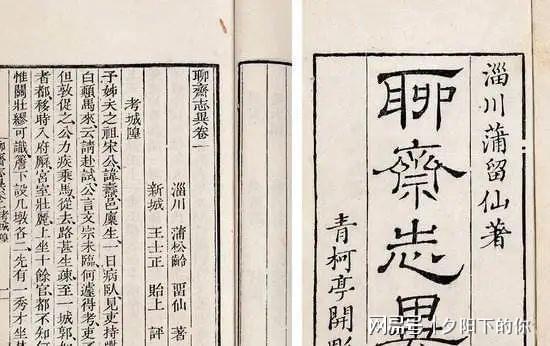 淄川蒲留仙著
聊齋志異
青柯亭開雕
聊齋志異卷一
淄川 蒲松齡 畱仙 著
新城 王士正 貽上 評
考城隍
予姊夫之祖宋公諱燾邑廩生一日病臥見吏持牒
白顛馬來云請赴試公言文宗未臨何遽得考吏
但敦促之公力疾乘馬從去路甚生疎至一城郭如
者都移時入府廨宮室壯麗上坐十餘官都不知何
惟關壯繆可識簷下設几墩各二先有一秀才坐其
夕阳下的你